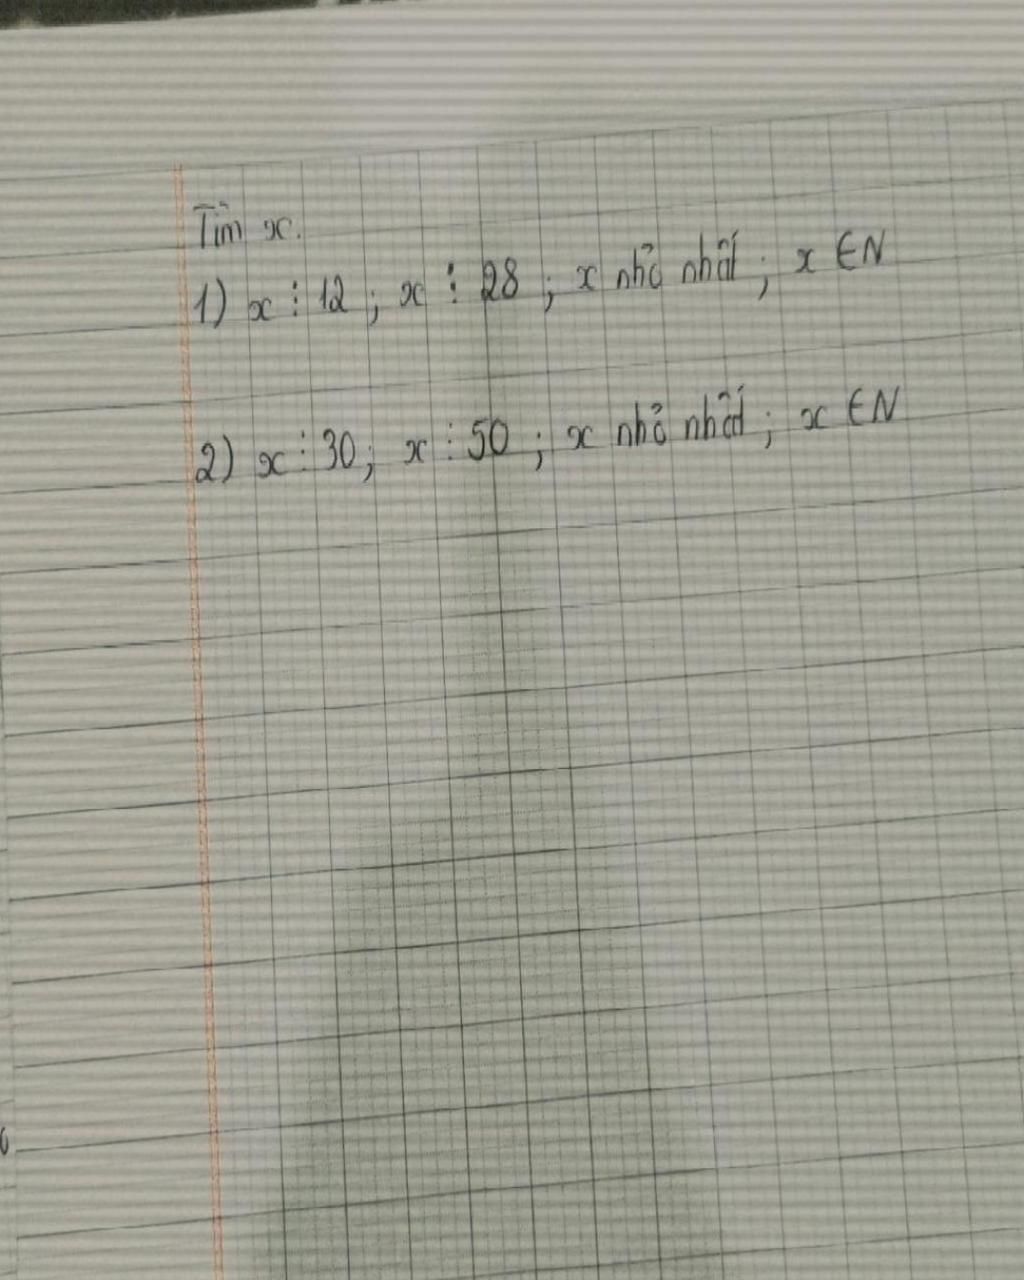 Tìm x.
1) x ⋮ 12 ; x ⋮ 28 ; x nhỏ nhất ; x ∈ N
2) x ⋮ 30 ; x ⋮ 50 ; x nhỏ nhất ; x ∈ N